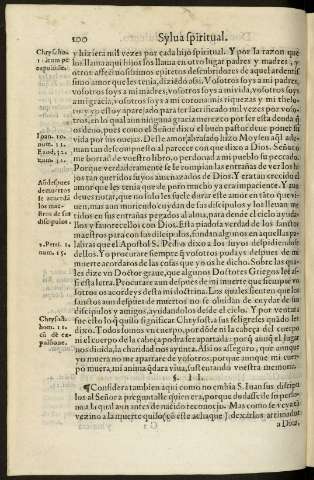 200 Sylua spiritual.
y hiziera mil vezes por cada hijo spiritual. Y por la razon que
los llama aqui hijos los llama en otro lugar padres y madres, y
otros
simo amor que les tenia, diziendo soys mis padres,
Vosotros soys mis padres, vosotros soys mi vida, vosotros soys
mi gracia, vosotros soys mi corona mis riquezas y mi theso-
ro y yo estoy aparejado para ser sacrificado mil vezes por voso-
tros, en lo qual aun ninguna gracia merezco por ser esta deuda q̃
os deuo, pues como el Señor dixo el buen pastor deue poner su
vida por sus ouejas. Deste amor abrasado hizo Moysen aq̃l
man tan al parecer con que dixo a Dios. Señor o
me borrad de vuestro libro, o perdonad a mi pueblo si peccado.
Porque verdaderamente se le rompian las entrañas de ver los hi
jos tan queridos suyos amenazados de Dios. Y eran tan crecido el
amor que les tenia que de puro mucho ya era impaciente. Y aun
deueys notar, que no solo les suele durar este amor en tãto que vi-
uen, mas aun muriendo cuydan de sus discipulos y los lleuan me
tidos en sus entrañas pegados al alma, para dende el cielo ayudar
llos y fauorescellos con Dios. Esta piadosa verdad de los sanctos
maestros para con sus discipulos, fundan algunos en aquellas pa-
labras que el Apostol S. Pedro dixo a los suyos despidiendose
dellos. Yo procurare siempre q̃ vosotros podays despues de mi
muerte acordaros de las cosas que yo os he dicho. Sobre las qua-
les dize vn Doctor graue, que algunos Doctores Griegos lee assi
esta letra. Procurare aun despues de mi muerte que siempre vo-
sotros os acordeys desta mi doctrina. Los quales sienten que los
sanctos aun despues de muertos no se oluidan de cuydar de sus
discipulos y amigos, ayudandolos desde el cielo. Y por ventura
fue esto lo q̃ quiso significar Chrysost. a sus feligreses quãdo les
dixo. Todos somos vn cuerpo, por dõde ni la cabeça del cuerpo
ni el cuerpo de la cabeça podra ser apartado: porq̃ aunq̃ el lugar
nos diuida, la charidad nos ayunta. Assi os asseguro, que aunque
yo muera no me apartare de vosotros, porque aunque mi cuer-
po muera, mi anima q̃dara viua, sustentando vuestra memoria.
§. II.
¶ Considera tambien aqui como no embia S. Iuan sus discipu
los al Señor a preguntalle quien era, porque dudasse de su perso-
na a la qual aun antes de nacido reconocio. Mas como se vey a tã
vezino a la muerte quiso
a Dios,
Chrysostho.
Ioan. 10.
num. 11.
Exod. 32.
num. 32.
Aũ despues
de muertos
se acuerdã
los mae-
stros de sus
discipulos.
2. Petri. 1.
num. 15.
Chrysost.
hom. 11.